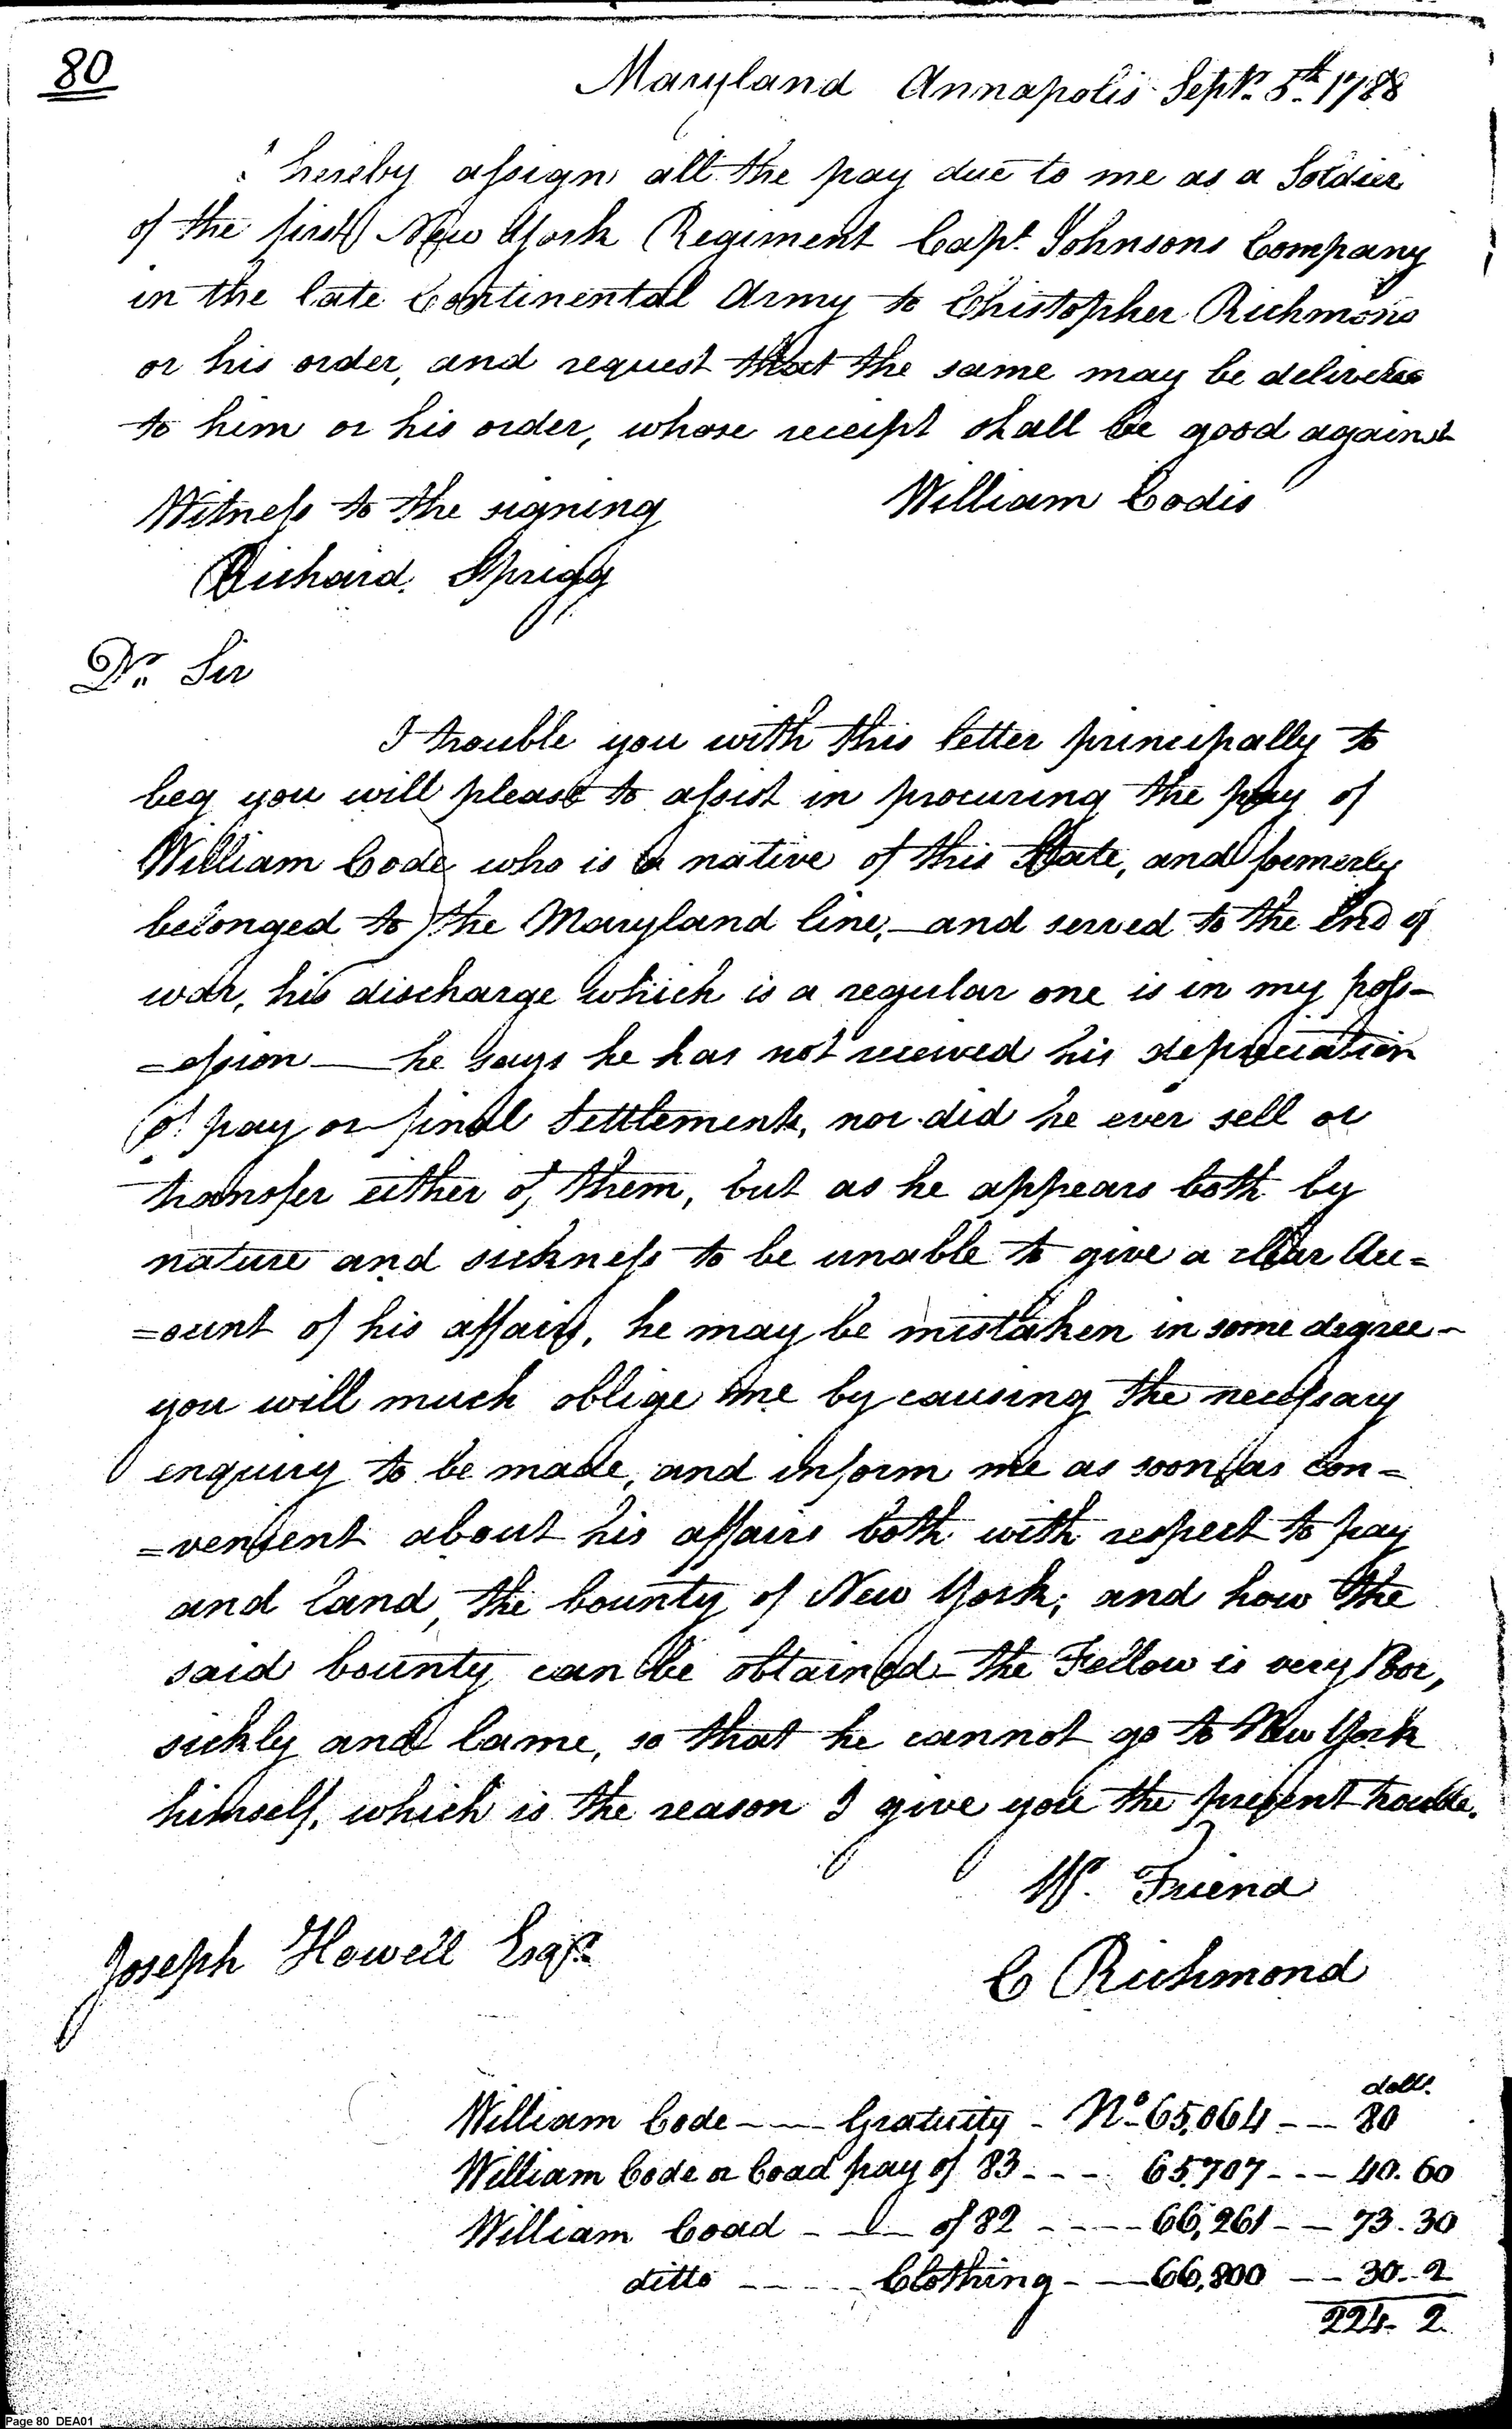 80
Maryland Annapolis Septr. 5th. 1788
I hereby assign all the pay due to me as a Soldier
of the first New York Regiment Capt. Johnsons Company
in the late Continental Army to Christopher Richmond
or his order, and request that the same may be delivered
to him or his order, whose receipt shall be good against
Witness to the signing William Codis
Richard Sprigg
Dr. Sir
I trouble you with this letter principally to
beg you will please to assist in procuring the pay of
William Code who is a native of this State, and formerly
belonged to the Maryland line,—and served to the End of
war, his discharge which is a regular one is in my poss-
=ession — he says he has not received his depreciation
of pay or final Settlements, nor did he ever sell or
transfer either of them, but as he appears both by
nature and sickness to be unable to give a clear Acc=
=ount of his affairs, he may be mistaken in some degree-
you will much oblige me by causing the necessary
enquiry to be made, and inform me as soon as con=
=venient about his affairs both with respect to pay
and land, the bounty of New York; and how the
said bounty can be obtained - the Fellow is very Poor,
sickly and lame, so that he cannot go to New York
himself, which is the reason I give you the present trouble.
Yr. Friend
Joseph Howell Esqr. C Richmond
dolls.
William Code - - - Gratuity - No. 65,064 - - - 80
William Code or Coad pay of 83 - - - 65,707 - - - 40.60
William Coad - - - of 82 - - - - 66,261 - - 73.30
ditto - - - - Clothing - - 66,800 - - 30..2
224. 2.
Page 80 DEA01